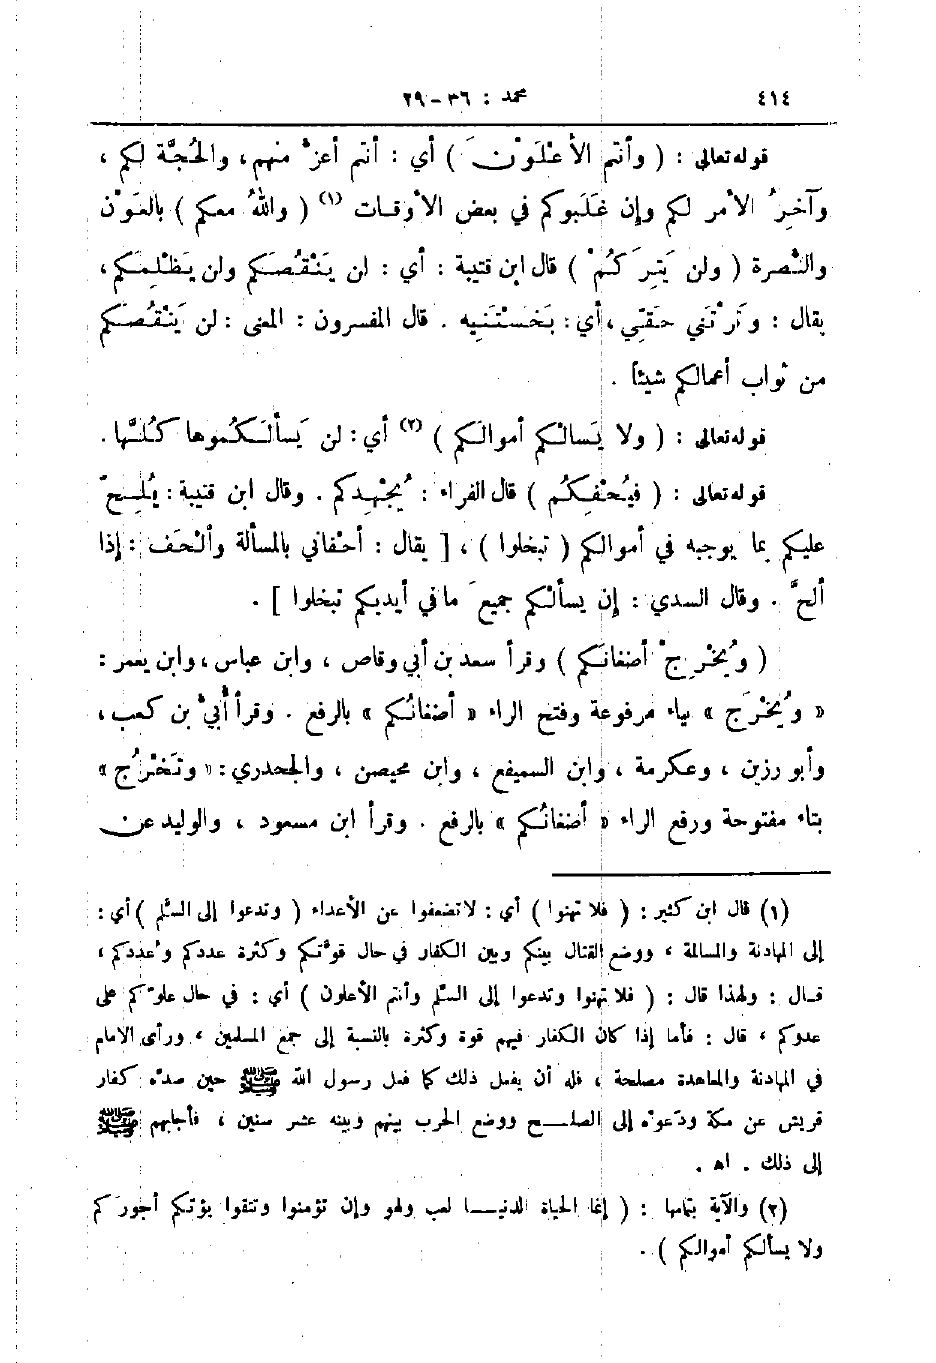 ٤١٤ محمد : ٣٦ - ٢٩
قوله تعالى : ( وأنتم الأعْلَوْنَ ) أي : أنتم أعزُّ منهم، والحُجَّة لكم ،
وآخِرُ الأمر لكم وإن غَلَبوكم في بعض الأوقات (١) ( واللهُ معكم ) بالعَوْن
والنُّصرة ( ولن يَتِرَكُمْ ) قال ابن قتيبة : أي : لن يَنْقُصَكم ولن يَظْلِمَكم،
يقال : وَتَرْتَني حَقِّي ، أي : بَخَسْتَنيه . قال المفسرون : المعنى : لن يَنْقُصَكم
من ثواب أعمالكم شيئاً .
قوله تعالى : ( ولا يَسألْكم أموالَكم ) (٢) أي : لن يَسألَكُموها كُلَّها .
قوله تعالى : ( فيُحْفِكُم ) قال الفراء : يُجْهِدكم . وقال ابن قتيبة : يُلِحّ
عليكم بما يوجبه في أموالكم ( تبخلوا ) ، [ يقال : أحْفاني بالمسألة وألْحَف : إذا
ألحَّ . وقال السدي : إن يسألْكم جميعَ ما في أيديكم تبخلوا ] .
( ويُخْرِجْ أضغانَكم ) وقرأ سعد بن أبي وقاص ، وابن عباس ، وابن يعمر :
« ويُخْرَج » بياء مرفوعة وفتح الراء « أضغانُكم » بالرفع . وقرأ أُبيّ بن كعب ،
وأبو رزين ، وعكرمة ، وابن السميفع ، وابن محيصن ، والجحدري : « وتَخْرُج »
بتاء مفتوحة ورفع الراء « أضغانُكم » بالرفع . وقرأ ابن مسعود ، والوليد عن
(١) قال ابن كثير : ( فلا تهنوا ) أي : لا تضعفوا عن الأعداء ( وتدعوا إلى السَّلم ) أي :
إلى المهادنة والمسالمة ، ووضع القتال بينكم وبين الكفار في حال قوّتكم وكثرة عددكم وعُددكم ،
قال : ولهذا قال : ( فلا تهنوا وتدعوا إلى السَّلم وأنتم الأعلون ) أي : في حال علوّكم على
عدوكم ، قال : فأما إذا كان الكفار فيهم قوة وكثرة بالنسبة إلى جمع المسلمين ، ورأى الامام
في المهادنة والمعاهدة مصلحة ، فله أن يفعل ذلك كما فعل رسول الله ﷺ حين صدّه كفار
قريش عن مكة ودَعَوْه إلى الصلح ووضع الحرب بينهم وبينه عشر سنين ، فأجابهم ﷺ
إلى ذلك . اهـ .
(٢) والآية بتمامها : ( إنما الحياة الدنيا لعب ولهو وإن تؤمنوا وتتقوا يؤتكم أجورَكم
ولا يسألكم أموالكم ) .